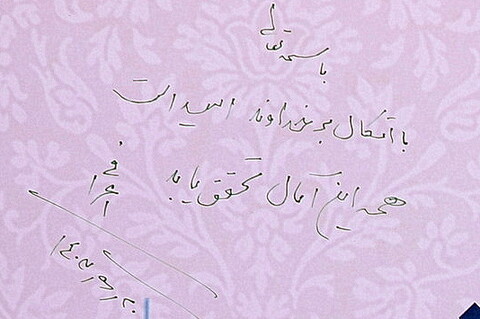 باسمه تعالی
با اتکال بر خداوند امید است
همه این آمال تحقق یابد